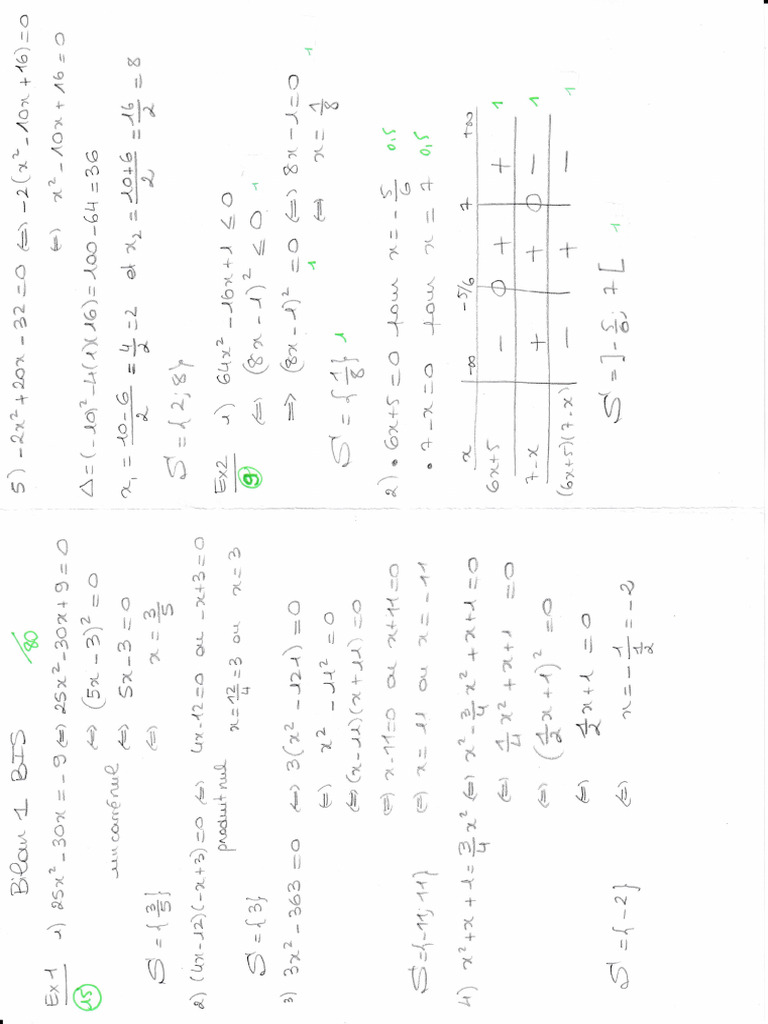 Bilan 1 BIS /80
Ex1 1) 25x² - 30x = -9 ⇔ 25x² - 30x + 9 = 0
15 ⇔ (5x - 3)² = 0
un carré nul ⇔ 5x - 3 = 0
⇔ x = 3/5
S = {3/5}
2) (4x - 12)(-x + 3) = 0 ⇔ 4x - 12 = 0 ou -x + 3 = 0
produit nul x = 12/4 = 3 ou x = 3
S = {3}
3) 3x² - 363 = 0 ⇔ 3(x² - 121) = 0
⇔ x² - 11² = 0
⇔ (x - 11)(x + 11) = 0
⇔ x - 11 = 0 ou x + 11 = 0
⇔ x = 11 ou x = -11
S = {-11; 11}
4) x² + x + 1 = 3/4 x² ⇔ x² - 3/4 x² + x + 1 = 0
⇔ 1/4 x² + x + 1 = 0
⇔ (1/2 x + 1)² = 0
⇔ 1/2 x + 1 = 0
⇔ x = - 1/(1/2) = -2
S = {-2}
5) -2x² + 20x - 32 = 0 ⇔ -2(x² - 10x + 16) = 0
⇔ x² - 10x + 16 = 0
Δ = (-10)² - 4(1)(16) = 100 - 64 = 36
x₁ = (10 - 6)/2 = 4/2 = 2 et x₂ = (10 + 6)/2 = 16/2 = 8
S = {2; 8}
Ex2 1) 64x² - 16x + 1 ≤ 0
9 ⇔ (8x - 1)² ≤ 0 1
⇒ (8x - 1)² = 0 ⇔ 8x - 1 = 0 1
1 ⇔ x = 1/8
S = {1/8} 1
2) • 6x + 5 = 0 pour x = - 5/6 0,5
• 7 - x = 0 pour x = 7 0,5
x -∞ -5/6 7 +∞
6x + 5 - 0 + + 1
7 - x + + 0 - 1
(6x + 5)(7 - x) - + - 1
S = ]- 5/6; 7[ 1